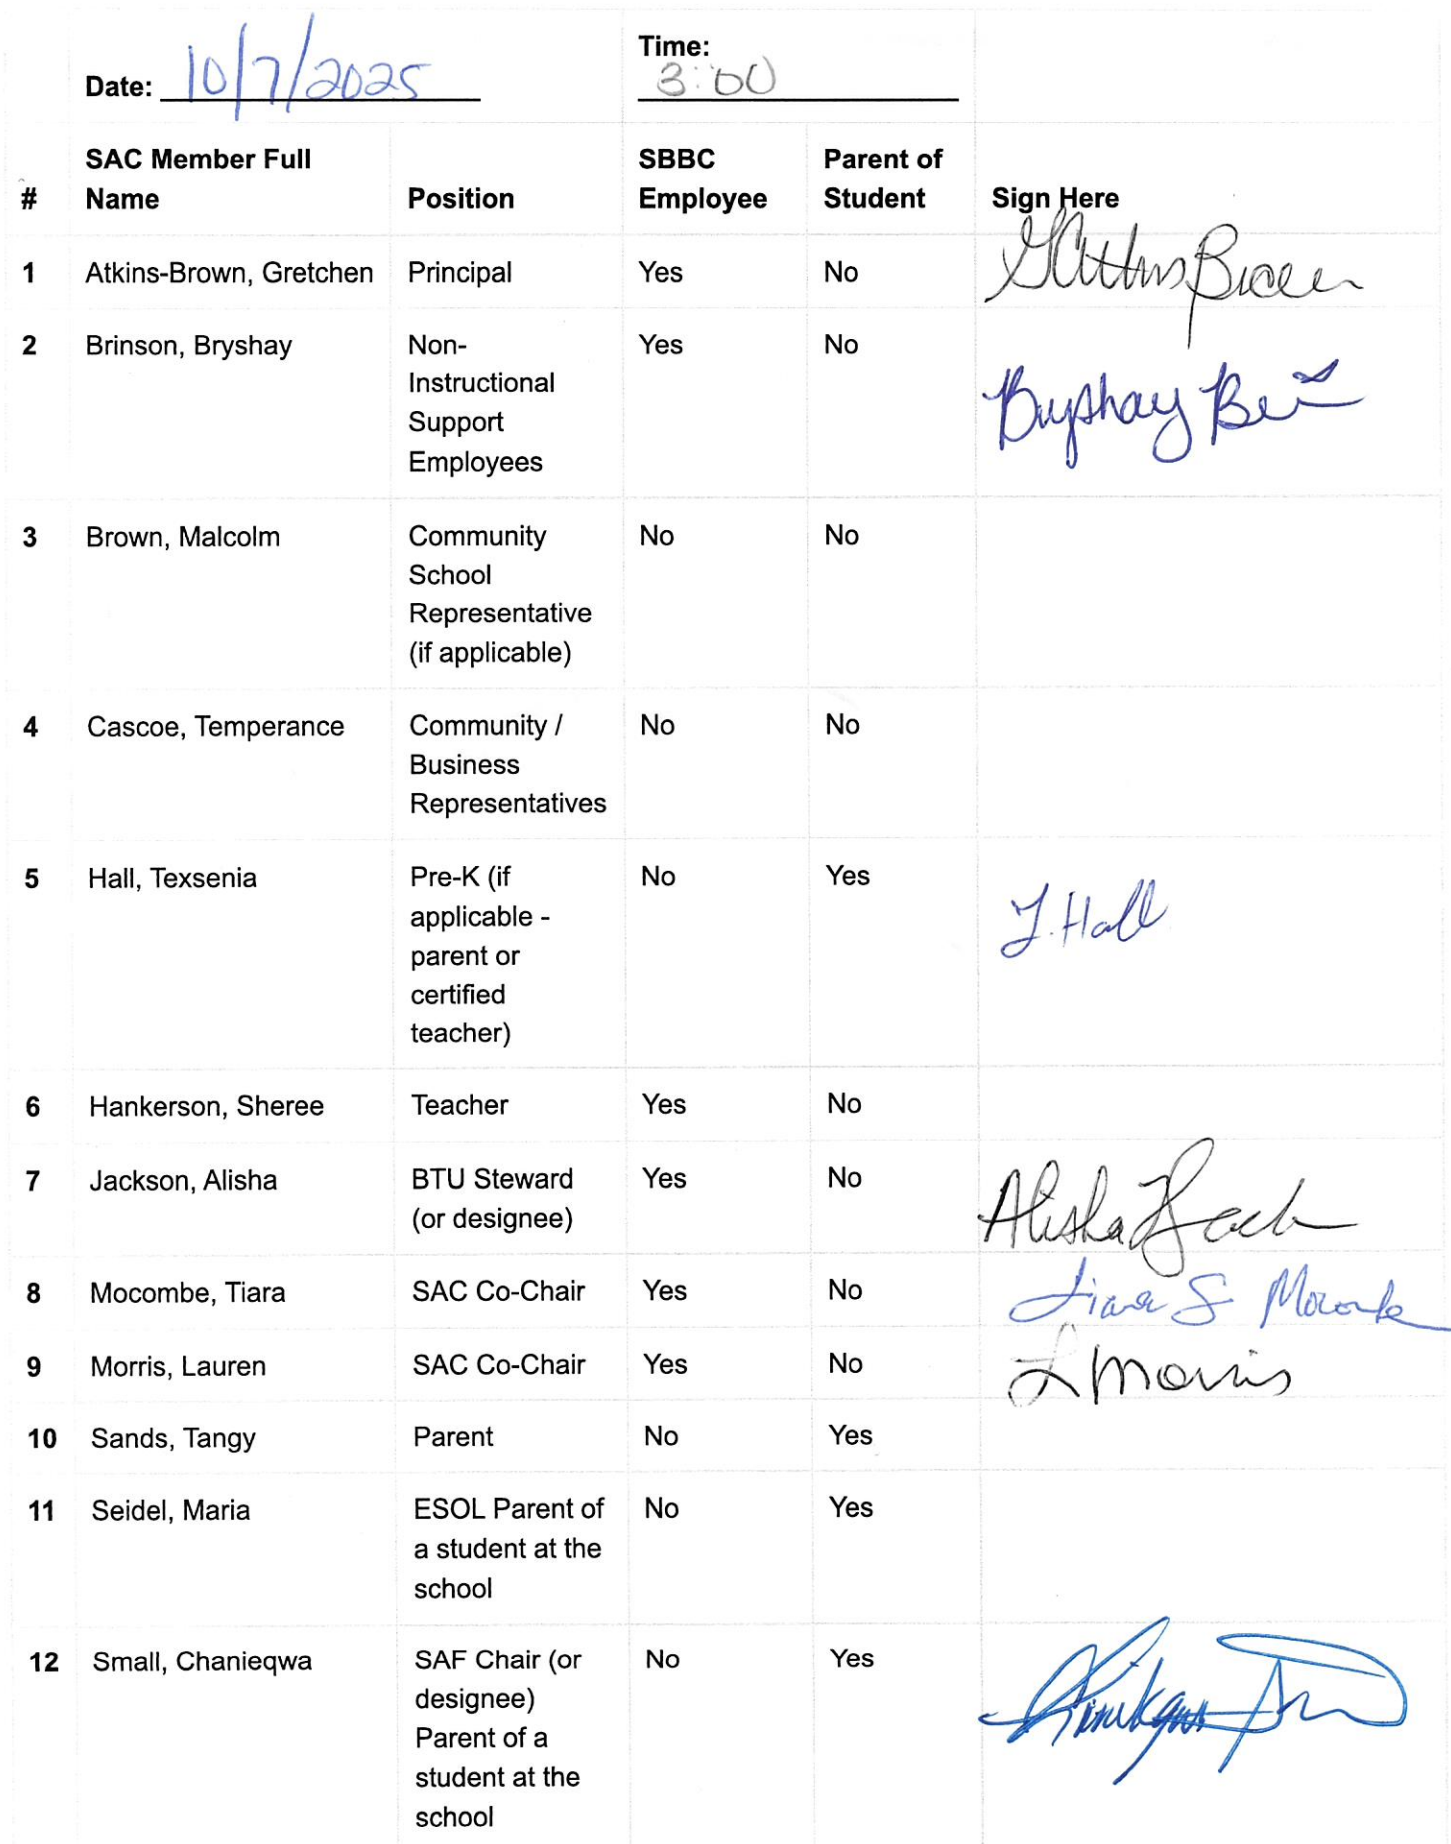 Date: 10/7/2025 Time: 3:00
# SAC Member Full Name Position SBBC Employee Parent of Student Sign Here
1 Atkins-Brown, Gretchen Principal Yes No
2 Brinson, Bryshay Non-
Instructional
Support
Employees Yes No Bryshay
3 Brown, Malcolm Community
School
Representative
(if applicable) No No
4 Cascoe, Temperance Community /
Business
Representatives No No
5 Hall, Texsenia Pre-K (if
applicable -
parent or
certified
teacher) No Yes T. Hall
6 Hankerson, Sheree Teacher Yes No
7 Jackson, Alisha BTU Steward
(or designee) Yes No Alisha
8 Mocombe, Tiara SAC Co-Chair Yes No Tiara S Mocombe
9 Morris, Lauren SAC Co-Chair Yes No L Morris
10 Sands, Tangy Parent No Yes
11 Seidel, Maria ESOL Parent of
a student at the
school No Yes
12 Small, Chanieqwa SAF Chair (or
designee)
Parent of a
student at the
school No Yes